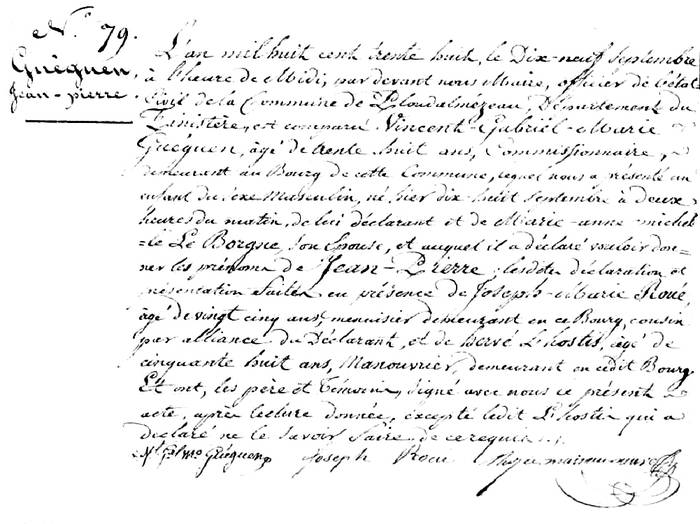 N.º 79.
Guéguen
Jean-pierre.
L'an mil huit cent trente huit, le Dix-neuf Septembre
à l'heure de Midi, par devant nous Maire, officier de l'état
Civil de la Commune de Ploudalmézeau, Département du
Finistère, est comparu Vincent-Gabriel-Marie
Guéguen, âgé de trente huit ans, Commissionnaire,
demeurant au Bourg de cette Commune, lequel nous a présenté un
enfant du sexe Masculin, né hier dix-huit Septembre à deux
heures du matin, de lui déclarant et de Marie-anne-michel
=le Le Borgne, son Epouse, et auquel il a déclaré vouloir don-
ner les prénoms de Jean-Pierre; lesdites déclaration et
présentation faites en présence de Joseph-Marie Roué
âgé de vingt cinq ans, menuisier demeurant en ce Bourg, cousin
par alliance du Déclarant, et de hervé L'hostis, âgé de
cinquante huit ans, Manouvrier, demeurant en cedit Bourg
Et ont, les père et témoins, signé avec nous ce présent
acte, après lecture donnée, excepté ledit L'hostis qui a
déclaré ne le savoir faire de ce requis.
Guéguen Joseph Roué